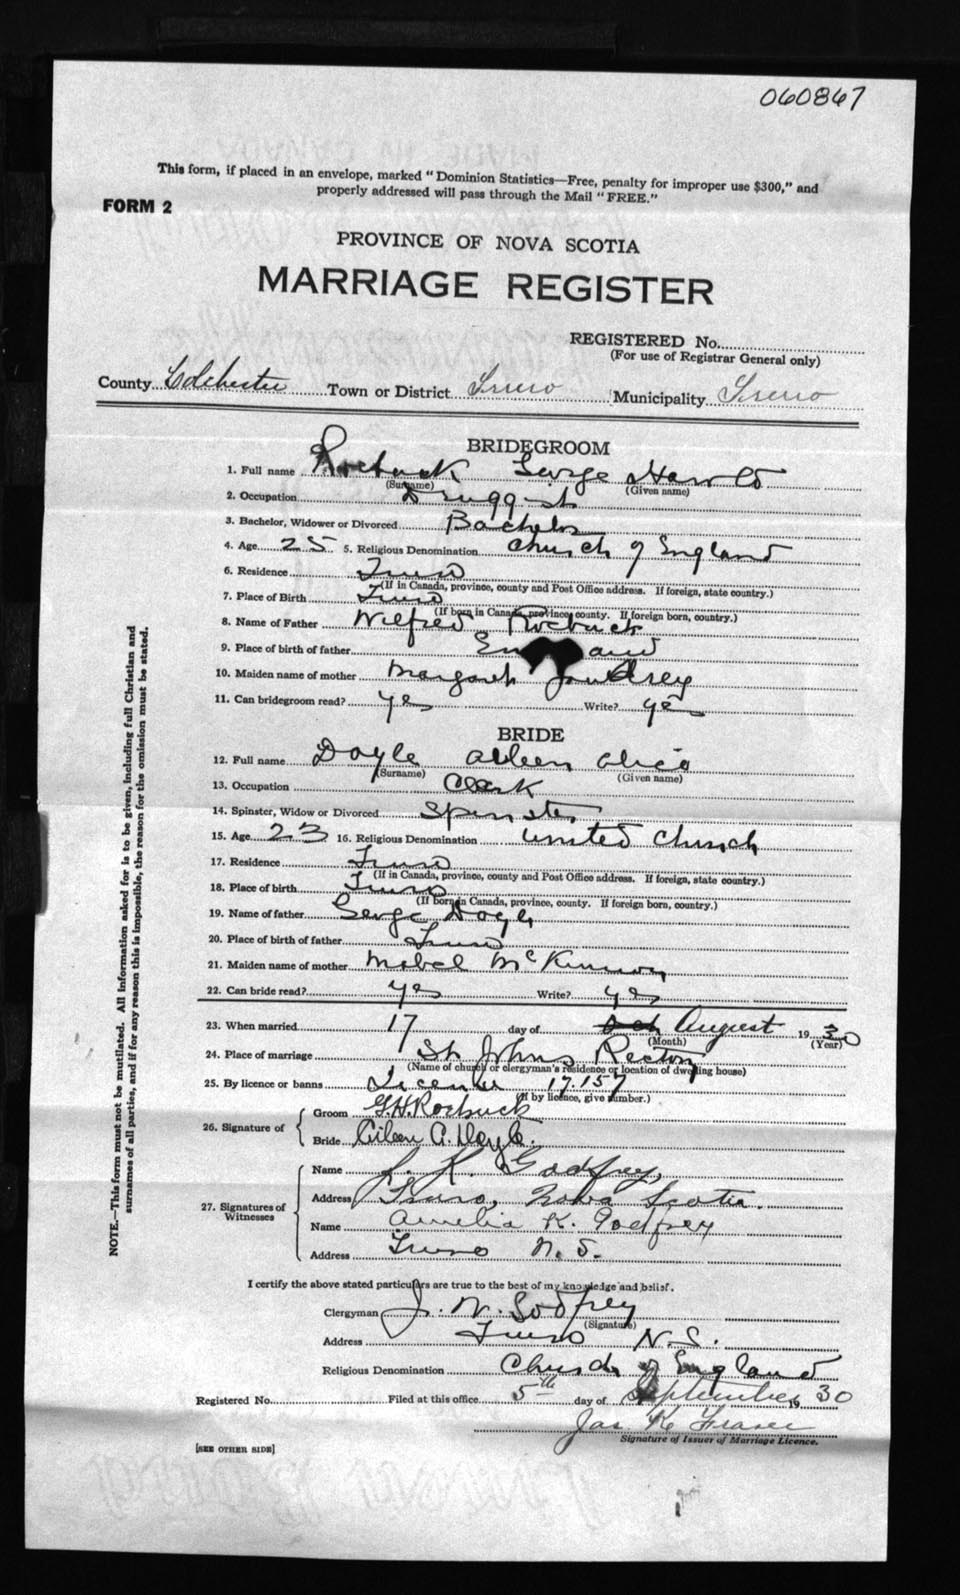 060867
This form, if placed in an envelope, marked "Dominion Statistics—Free, penalty for improper use $300," and
properly addressed will pass through the Mail "FREE."
FORM 2
PROVINCE OF NOVA SCOTIA
MARRIAGE REGISTER
REGISTERED No.
(For use of Registrar General only)
County Colchester Town or District Truro Municipality Truro
BRIDEGROOM
1. Full name Roebuck George Harold
(Surname) (Given name)
2. Occupation Druggist
3. Bachelor, Widower or Divorced Bachelor
4. Age 25 5. Religious Denomination Church of England
6. Residence Truro
(If in Canada, province, county and Post Office address. If foreign, state country.)
7. Place of Birth Truro
(If born in Canada, province, county. If foreign born, country.)
8. Name of Father Wilfred Roebuck
9. Place of birth of father England
10. Maiden name of mother Margaret
11. Can bridegroom read? yes Write? yes
BRIDE
12. Full name Doyle Aileen Alice
(Surname) (Given name)
13. Occupation Clerk
14. Spinster, Widow or Divorced Spinster
15. Age 23 16. Religious Denomination United Church
17. Residence Truro
(If in Canada, province, county and Post Office address. If foreign, state country.)
18. Place of birth Truro
(If born in Canada, province, county. If foreign born, country.)
19. Name of father George Doyle
20. Place of birth of father Truro
21. Maiden name of mother Mabel McKinnon
22. Can bride read? yes Write? yes
23. When married 17 day of August 1930
(Month) (Year)
24. Place of marriage St Johns Rectory
(Name of church or clergyman's residence or location of dwelling house)
25. By licence or banns License 17.157
(If by licence, give number.)
26. Signature of
Groom G.H.Roebuck
Bride Aileen A. Doyle.
27. Signatures of Witnesses
Name R. Godfrey,
Address Truro, Nova Scotia.
Name Amelia K. Godfrey
Address Truro N.S.
I certify the above stated particulars are true to the best of my knowledge and belief.
Clergyman J. W. Godfrey
(Signature)
Address Truro N.S.
Religious Denomination Church of England
Registered No. Filed at this office 5th day of September 1930
Jas K Fraser
Signature of Issuer of Marriage Licence.
[SEE OTHER SIDE]
NOTE.—This form must not be mutilated. All information asked for is to be given, including full Christian and
surnames of all parties, and if for any reason this is impossible, the reason for the omission must be stated.